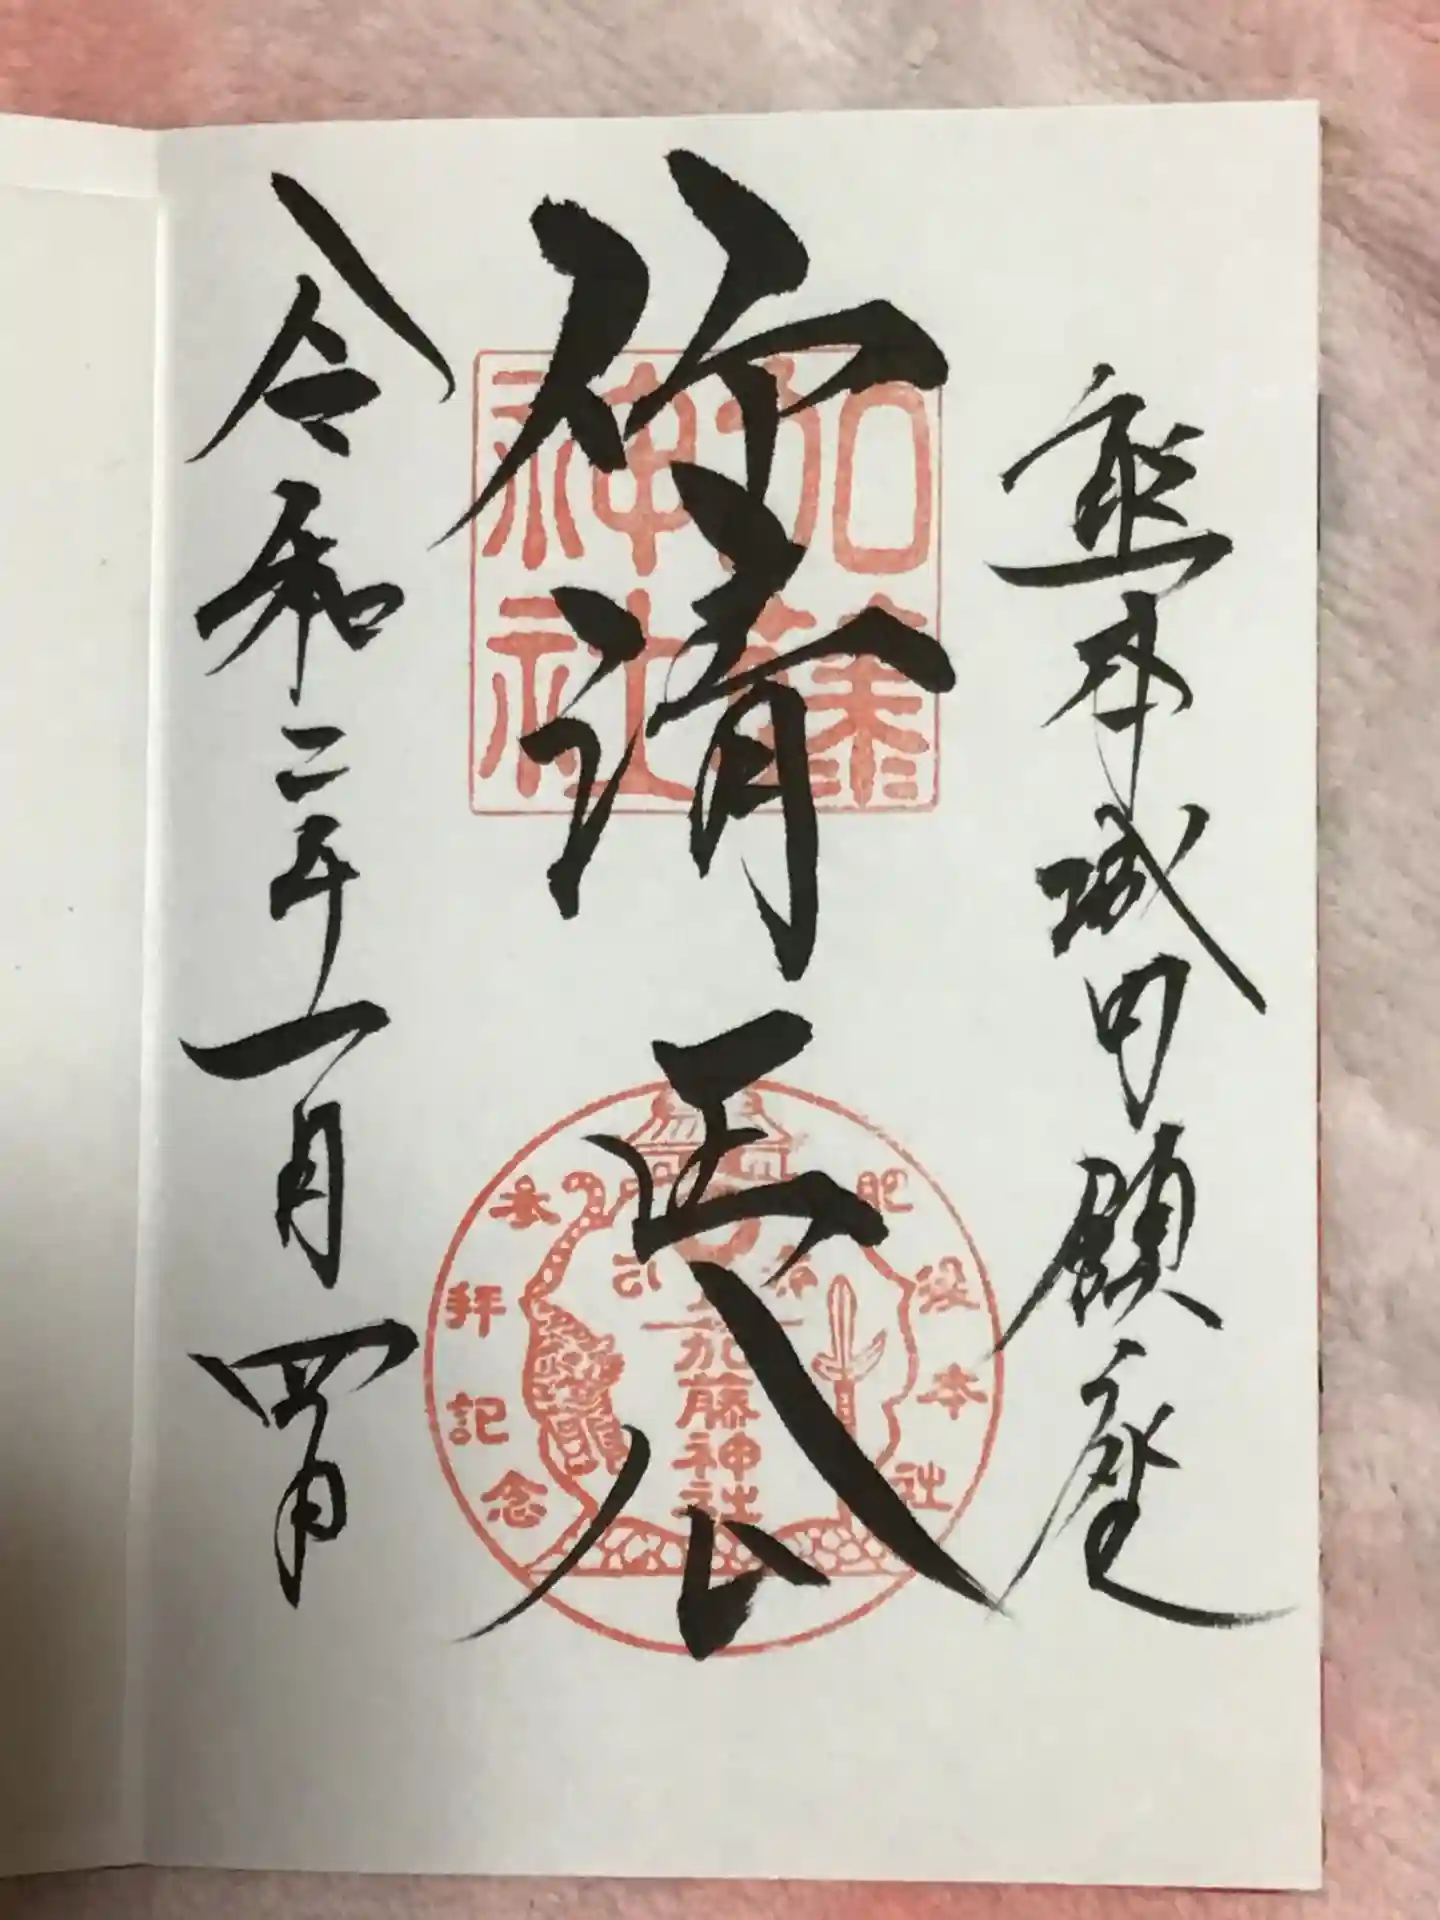 熊本城内鎮座
仰清正公
令和二年一月四日
加藤
神社
肥後本社
加藤神社
参拝記念